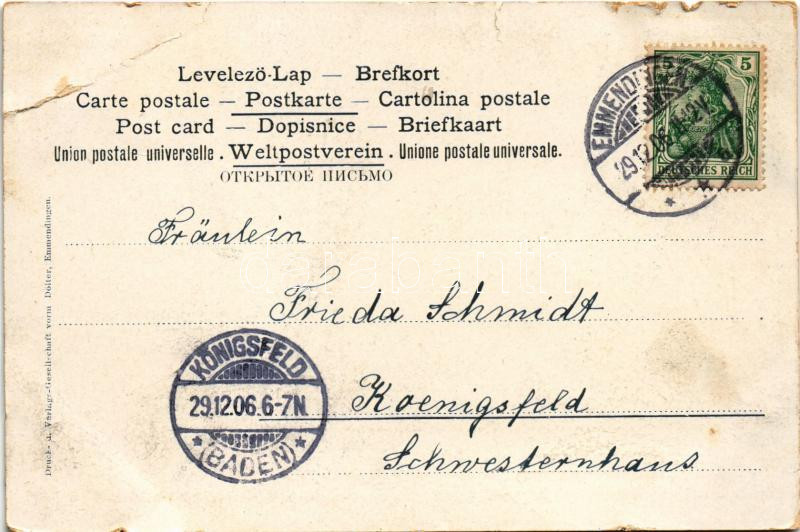 Levelezö-Lap — Brefkort
Carte postale — Postkarte — Cartolina postale
Post card — Dopisnice — Briefkaart
Union postale universelle. Weltpostverein. Unione postale universale.
ОТКРЫТОЕ ПИСЬМО
5 5
DEUTSCHES REICH
EMMENDINGEN
29.12.06.
Fräulein
Frieda Schmidt
Koenigsfeld
Schwesternhaus
KÖNIGSFELD
29.12.06.6-7N.
* (BADEN) *
Druck- u. Verlags-Gesellschaft vorm Dölter, Emmendingen.